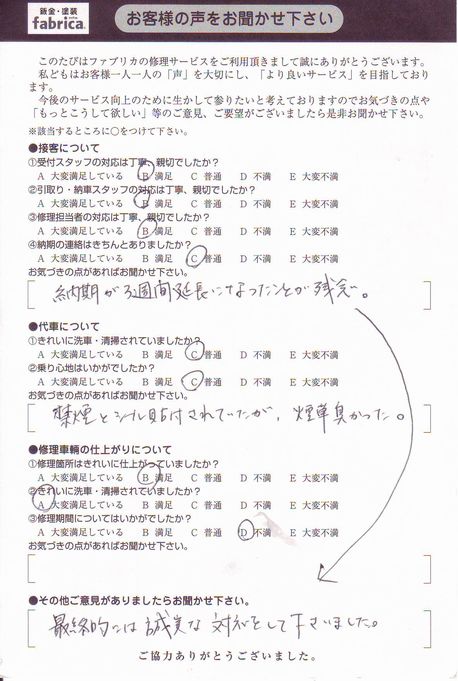 鈑金・塗装
fabrica.
お客様の声をお聞かせ下さい
このたびはファブリカの修理サービスをご利用頂きまして誠にありがとうございます。
私どもはお客様一人一人の「声」を大切にし、「より良いサービス」を目指しております。
今後のサービス向上のために生かして参りたいと考えておりますのでお気づきの点や
「もっとこうして欲しい」等のご意見、ご要望がございましたら是非お聞かせ下さい。
※該当するところに○をつけて下さい。
●接客について
①受付スタッフの対応は丁寧、親切でしたか？
A 大変満足している B 満足 C 普通 D 不満 E 大変不満
②引取り・納車スタッフの対応は丁寧、親切でしたか？
A 大変満足している B 満足 C 普通 D 不満 E 大変不満
③修理担当者の対応は丁寧、親切でしたか？
A 大変満足している B 満足 C 普通 D 不満 E 大変不満
④納期の連絡はきちんとありましたか？
A 大変満足している B 満足 C 普通 D 不満 E 大変不満
お気づきの点があればお聞かせ下さい。
納期が3週間延長になったことが残念。
●代車について
①きれいに洗車・清掃されていましたか？
A 大変満足している B 満足 C 普通 D 不満 E 大変不満
②乗り心地はいかがでしたか？
A 大変満足している B 満足 C 普通 D 不満 E 大変不満
お気づきの点があればお聞かせ下さい。
禁煙とシール貼付されていたが、煙草臭かった。
●修理車輌の仕上がりについて
①修理箇所はきれいに仕上がっていましたか？
A 大変満足している B 満足 C 普通 D 不満 E 大変不満
②きれいに洗車・清掃されていましたか？
A 大変満足している B 満足 C 普通 D 不満 E 大変不満
③修理期間についてはいかがでしたか？
A 大変満足している B 満足 C 普通 D 不満 E 大変不満
お気づきの点があればお聞かせ下さい。
●その他ご意見がありましたらお聞かせ下さい。
最終的には誠実な対応をして下さいました。
ご協力ありがとうございました。